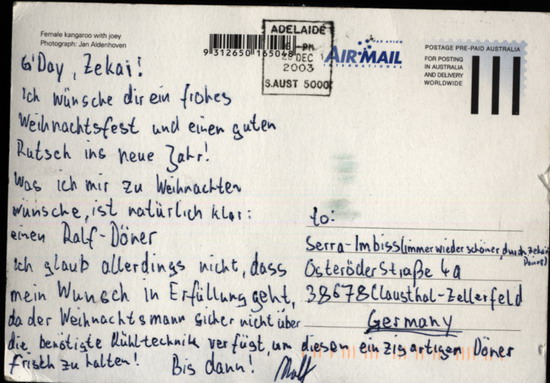 Female kangaroo with joey
Photograph: Jan Aldenhoven
9 312650 165048
ADELAIDE
PM
DEC
2003
S.AUST 5000
PAR AVION
AIR MAIL
INTERNATIONAL
POSTAGE PRE-PAID AUSTRALIA
FOR POSTING
IN AUSTRALIA
AND DELIVERY
WORLDWIDE
G'Day, Zekai!
Ich wünsche dir ein frohes
Weihnachtsfest und einen guten
Rutsch ins neue Jahr!
Was ich mir zu Weihnachten
wünsche, ist natürlich klar:
einen Ralf-Döner
Ich glaub allerdings nicht, dass
mein Wunsch in Erfüllung geht,
da der Weihnachtsmann sicher nicht über
die benötigte Kühltechnik verfügt, um diesen einzigartigen Döner
frisch zu halten! Bis dann! Ralf
to:
Serra-Imbiss (immer wieder schöner, durch Zekais Döner)
Osteröder Straße 4a
38678 Clausthal-Zellerfeld
Germany